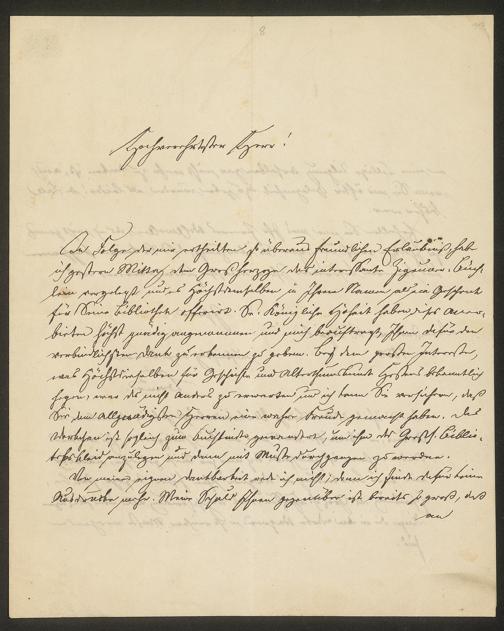 8
Hochverehrtester Herr!
In Folge der mir ertheilten so überaus freundlichen Erlaubniß, habe
ich gestern Mittag dem Großherzoge das interessante Zigeuner-Büch-
lein vorgelegt und es Höchstdemselben in Ihrem Namen als ein Geschenk
für Seine Bibliothek offerirt. Se. Königliche Hoheit haben dieß Aner-
bieten höchst gnädig angenommen und mich beauftragt, Ihnen dafür den
verbindlichsten Dank zu erkennen zu geben. Bey dem großen Interesse,
was Höchstdieselben für Geschichte und Alterthumskunde Hessens bekanntlich
hegen, war dieß nicht anders zu erwarten und ich kann Sie versichern, daß
Sie dem Allergnädigsten Herren eine wahre Freude gemacht haben. Das
Werkchen ist sogleich zum Buchbinder gewandert, um ihm das Großh. Biblio-
thekskleid anzulegen und dann mit Muße durchgangen zu werden.
Von meiner eignen Dankbarkeit rede ich nicht; denn ich finde dafür keine
Ausdrücke mehr. Meine Schuld Ihnen gegenüber ist bereits so groß, daß
an